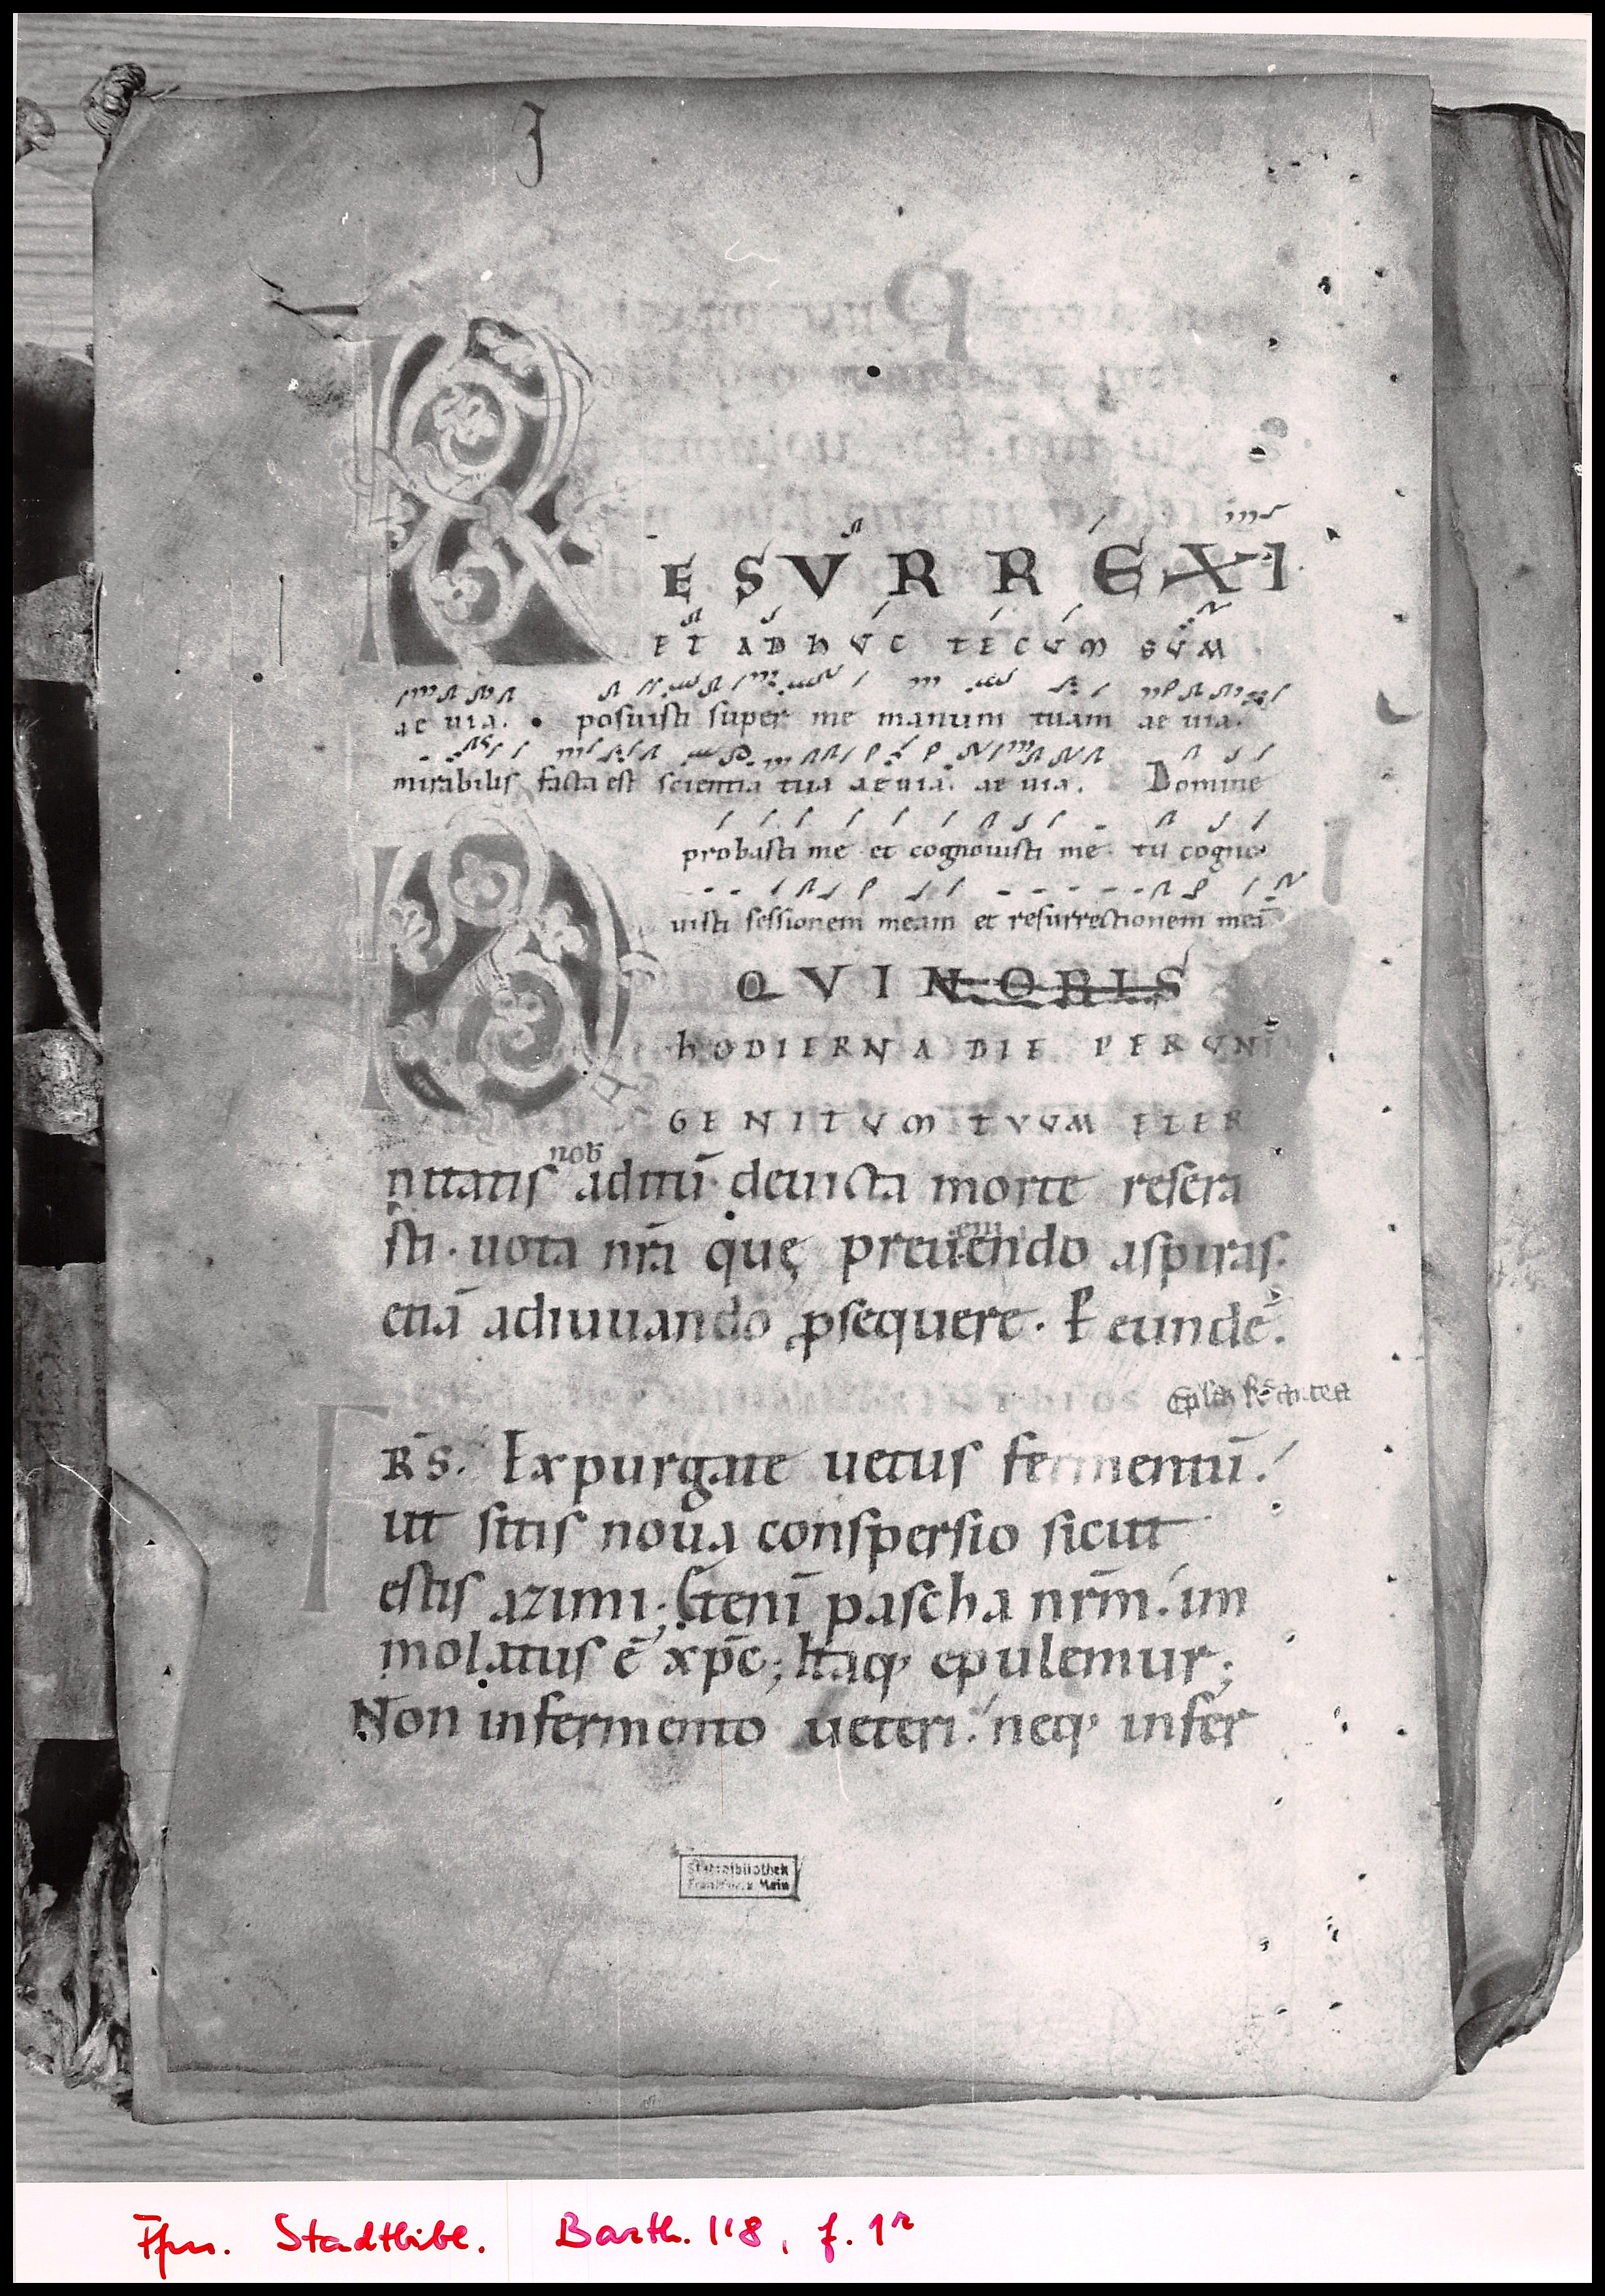 J
RESVRREXI
ET ADHVC TECVM SVM
ae uia. posuisti super me manum tuam ae uia.
mirabilis facta est scientia tua aeuia. ae uia. Domine
probasti me et cognouisti me. tu cogno
uisti sessionem meam et resurrectionem meā
DS QVI NOBIS
hODIERNA DIE PER VNI
GENITVM TVVM ETER
nob
nitatis aditū deuicta morte resera
sti. uota nr̄a quę preueniendo aspiras.
etiā adiuuando ꝓsequere. P eundē.
FRS. Expurgate uetus fermentū.
ut sitis noua conspersio sicut
estis azimi; Etenī pascha nr̄m. im
molatus ē xp̄c; Itaq; epulemur;
Non in fermento ueteri. neq; in fer
Stadtbibliothek
Frankfurt a Main
Ffm. Stadtbibl. Barth. 118, f. 1r